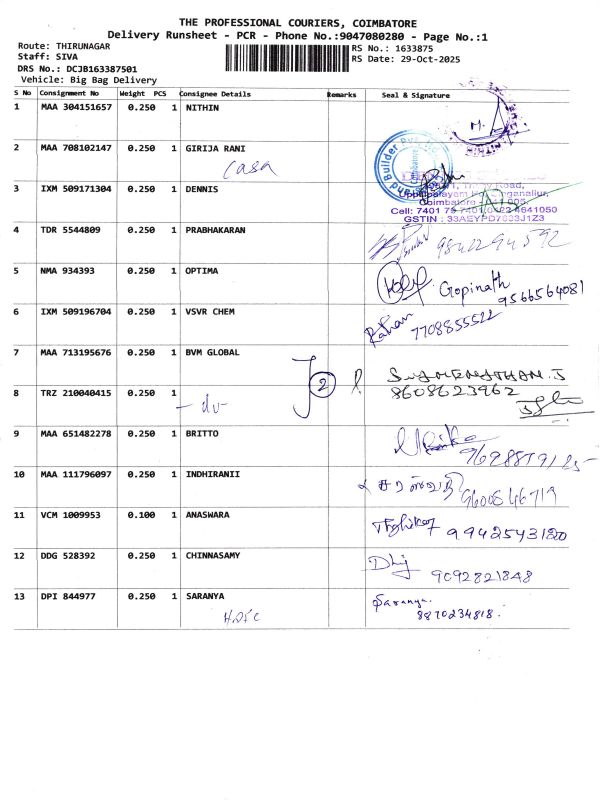 THE PROFESSIONAL COURIERS, COIMBATORE
Delivery Runsheet - PCR - Phone No.:9047080280 - Page No.:1
Route: THIRUNAGAR
Staff: SIVA
DRS No.: DCJB163387501
Vehicle: Big Bag Delivery
RS No.: 1633875
RS Date: 29-Oct-2025
S No Consignment No Weight PCS Consignee Details Remarks Seal & Signature
1 MAA 304151657 0.250 1 NITHIN
2 MAA 708102147 0.250 1 GIRIJA RANI
casa
Builder Pvt Ltd
3 IXM 509171304 0.250 1 DENNIS
Coimbatore
Cell: 7401
4641050
GSTIN : 33AEYPD7633J1Z3
4 TDR 5544809 0.250 1 PRABHAKARAN
9842294592
5 NMA 934393 0.250 1 OPTIMA
Gopinath
9566564081
6 IXM 509196704 0.250 1 VSVR CHEM
7708855522
7 MAA 713195676 0.250 1 BVM GLOBAL
2
8608623962
8 TRZ 210040415 0.250 1
9 MAA 651482278 0.250 1 BRITTO
10 MAA 111796097 0.250 1 INDHIRANII
9600846719
11 VCM 1009953 0.100 1 ANASWARA
12 DDG 528392 0.250 1 CHINNASAMY
9092821848
13 DPI 844977 0.250 1 SARANYA
HDFC
Saranya.
8870234818.